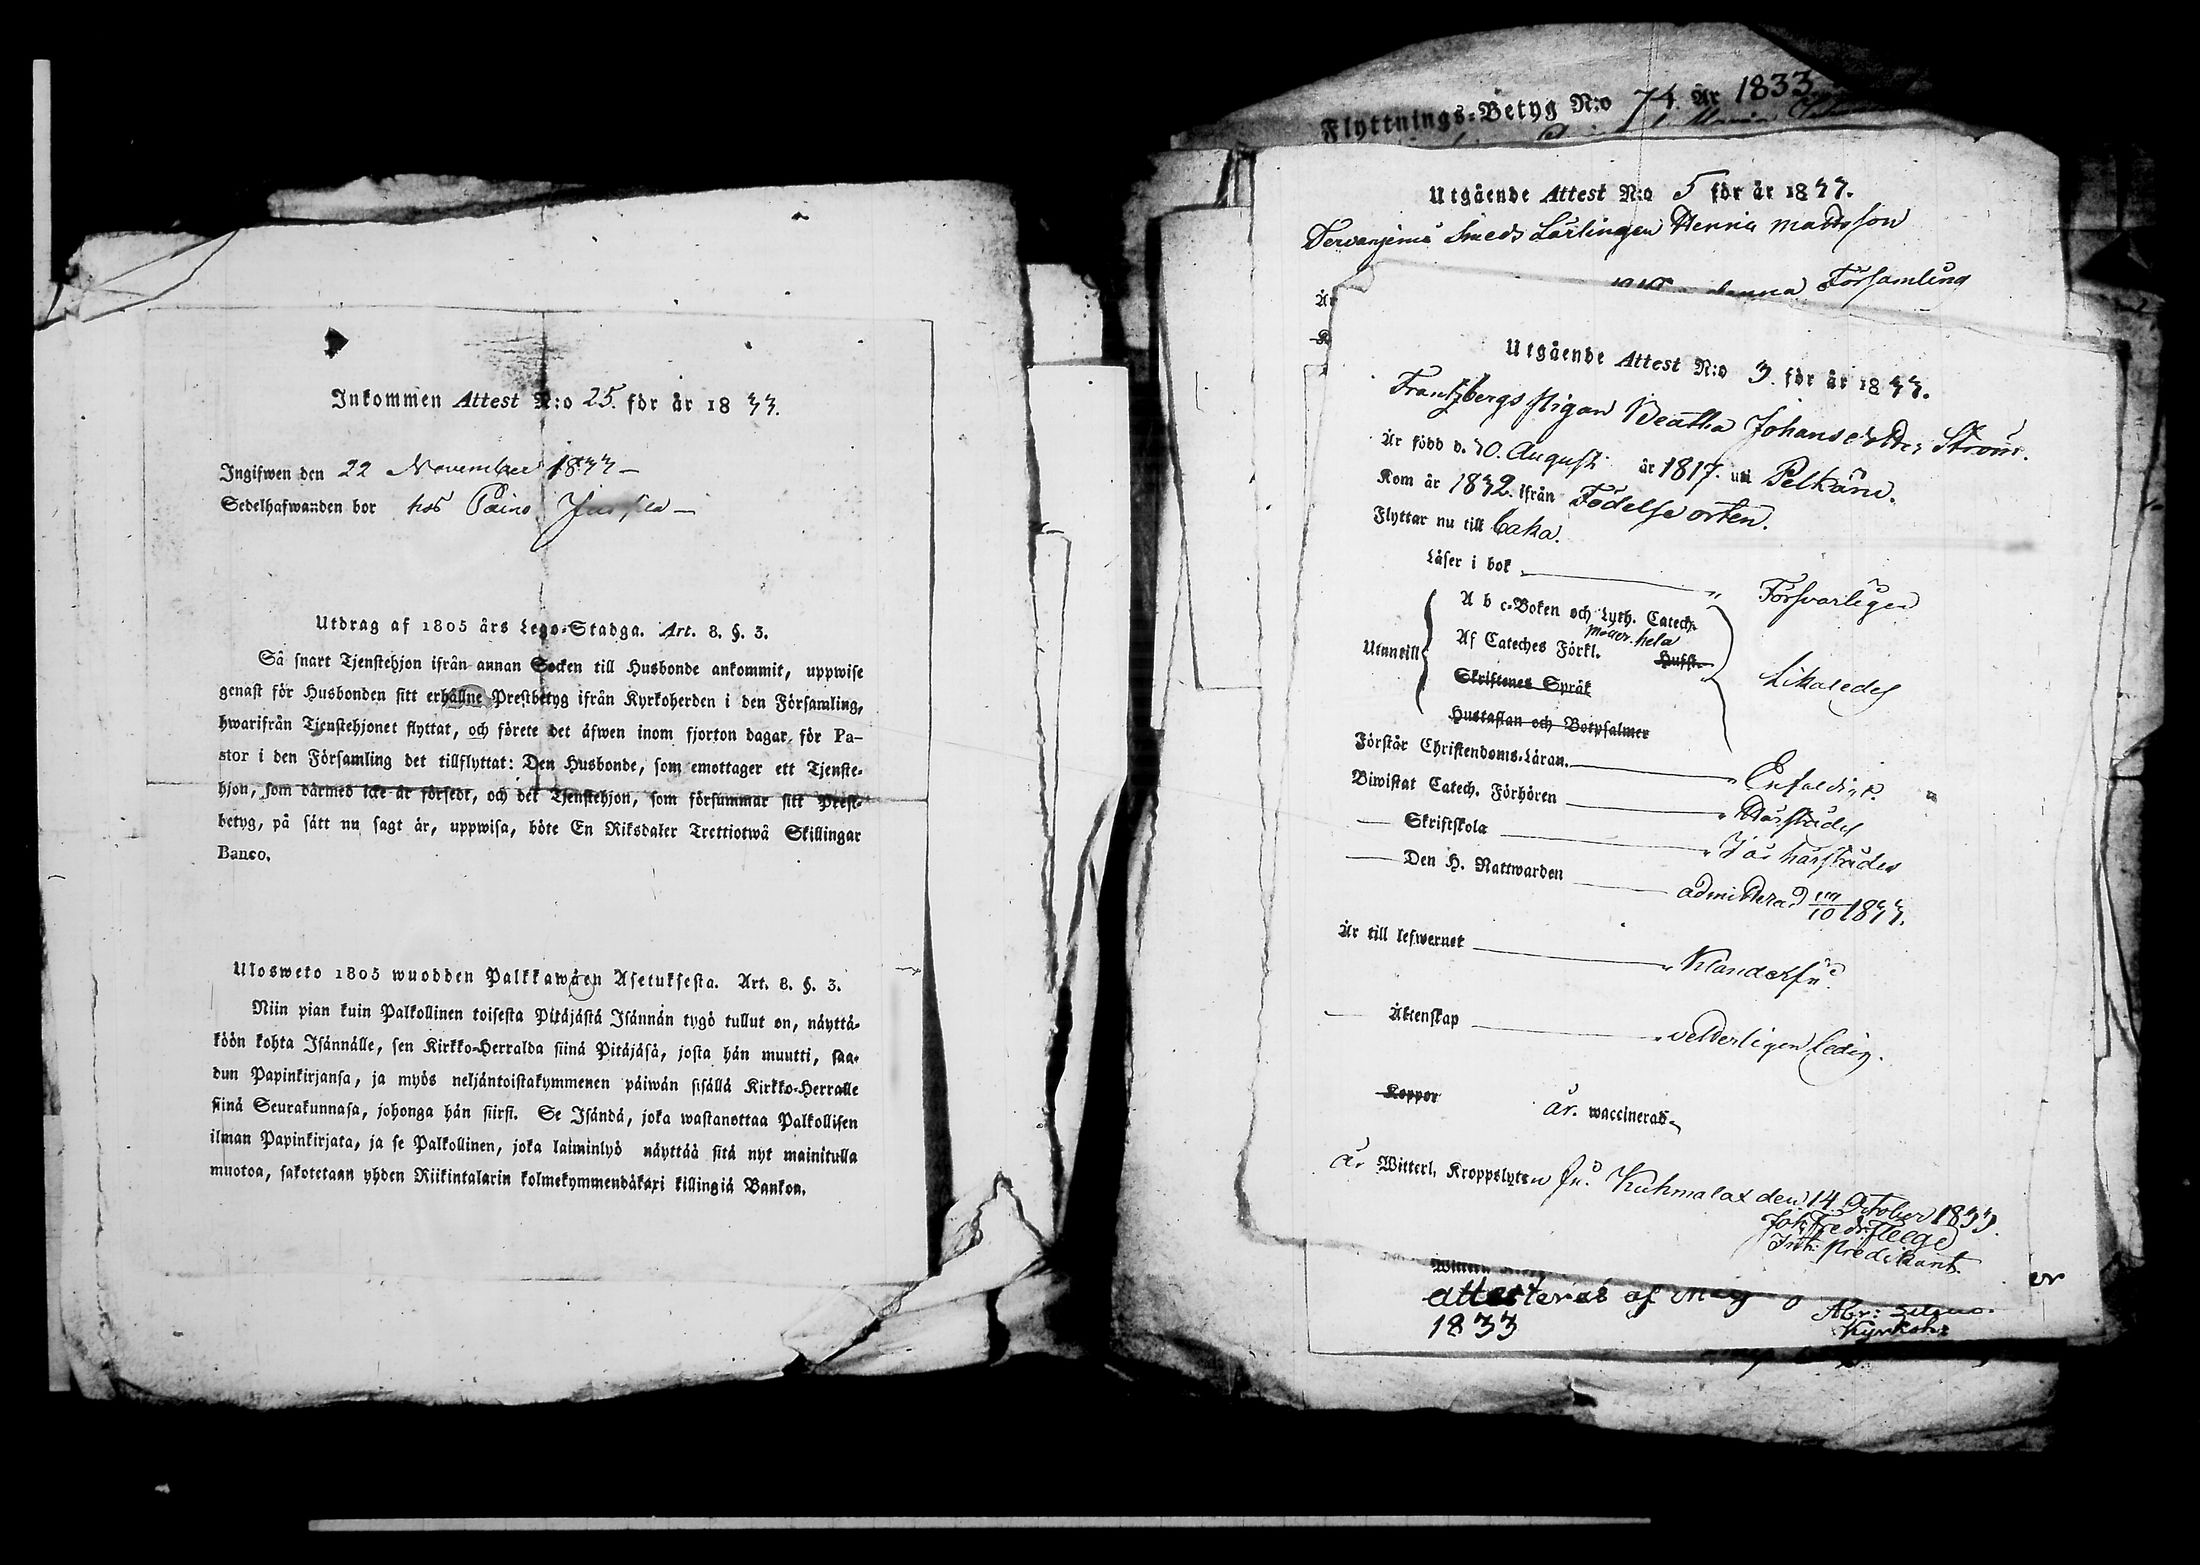 Inkommen Attest N:o 25. för år 1833.
Ingifwen den 22 November 1833 —
Sedelhafwanden bor hos Paino
Utdrag af 1805 års Lego-Stadga. Art. 8. §. 3.
Så snart Tjenstehjon ifrån annan Socken till Husbonde ankommit, uppwise
genast för Husbonden sitt erhållne Prestbetyg ifrån Kyrkoherden i den Församling,
hwarifrån Tjenstehjonet flyttat, och förete det äfwen inom fjorton dagar för Pa-
stor i den Församling det tillflyttat: Den Husbonde, som emottager ett Tjenste-
hjon, som därmed icke är försedt, och det Tjenstehjon, som försummar sitt Prest-
betyg, på sätt nu sagt är, uppwisa, böte En Riksdaler Trettiotwå Skillingar
Banco.
Ulosweto 1805 wuodden Palkkawäen Asetuksesta. Art. 8. §. 3.
Niin pian kuin Palkollinen toisesta Pitäjästä Isännän tygö tullut on, näyttä-
köön kohta Isännälle, sen Kirkko-Herralda siinä Pitäjäsä, josta hän muutti, saa-
dun Papinkirjansa, ja myös neljäntoistakymmenen päiwän sisällä Kirkko-Herralle
siinä Seurakunnasa, johonga hän siirsi. Se Isändä, joka wastanottaa Palkollisen
ilman Papinkirjata, ja se Palkollinen, joka laiminlyö näyttää sitä nyt mainitulla
muotoa, sakotetaan yhden Riikintalarin kolmekymmendäkaxi killingiä Bankoa.
Flyttnings-Betyg N:o 74. År 1833
Maria
Utgående Attest N:o 5 för år 1833.
Smeds Lärlingen Henric Mattsson
denna Församling
Är
Utgående Attest N:o 3. för år 1833.
Frantzbergs Pigan Beatha Johansdotter Ström.
Är född d. 30. Augusti år 1817. uti Pelkäne.
Kom år 1832. ifrån Födelse orten.
Flyttar nu till Eräjärvi
Läser i bok Försvarligen
A b c-Boken och Luth. Catech.
Utantill Af Cateches Förkl. hela Husst. Likaledes
Skriftenes Språk
Hustaflan och Botpsalmer
Förstår Christendoms-Läran. Enfaldigt.
Biwistat Catech. Förhören Härstädes
— Skriftskola Härstädes
— Den H. Nattwarden admitterad 1833.
Är till lefwernet Klanderfri
— Äktenskap veterligen ledig.
Koppor är. waccinerad
är Witterl. Kroppslyten fri. Kuhmalax den 14 October 1833.
Joh: Fredr: Fleege
Predikant.
attesteras af Mig
1833 Abr:
Kyrkoh: